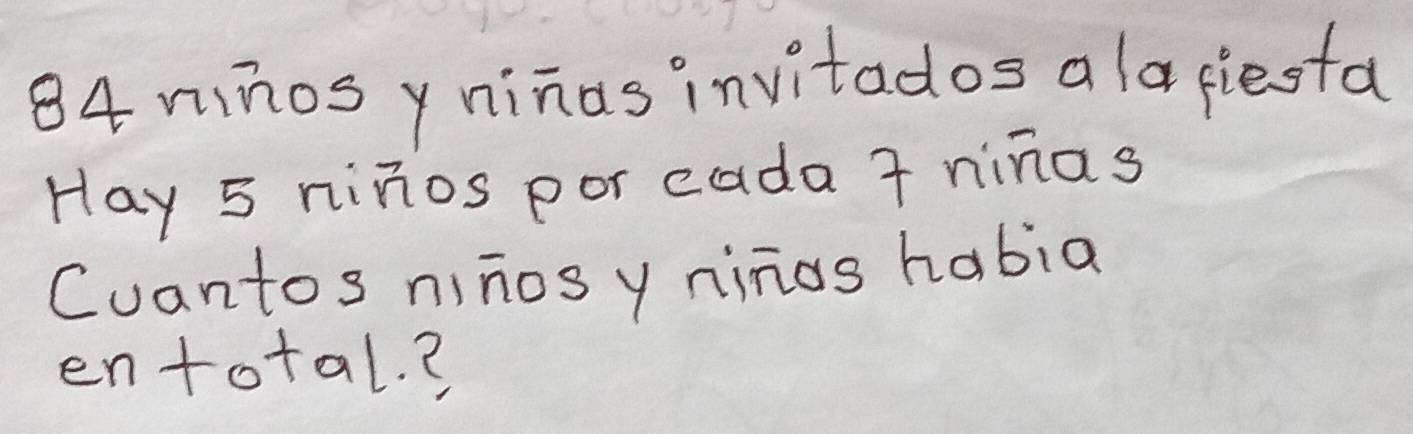 84 niños y niñas invitados a la fiesta
Hay 5 niños por cada 7 niñas
Cuantos niños y niñas habia
en total.?